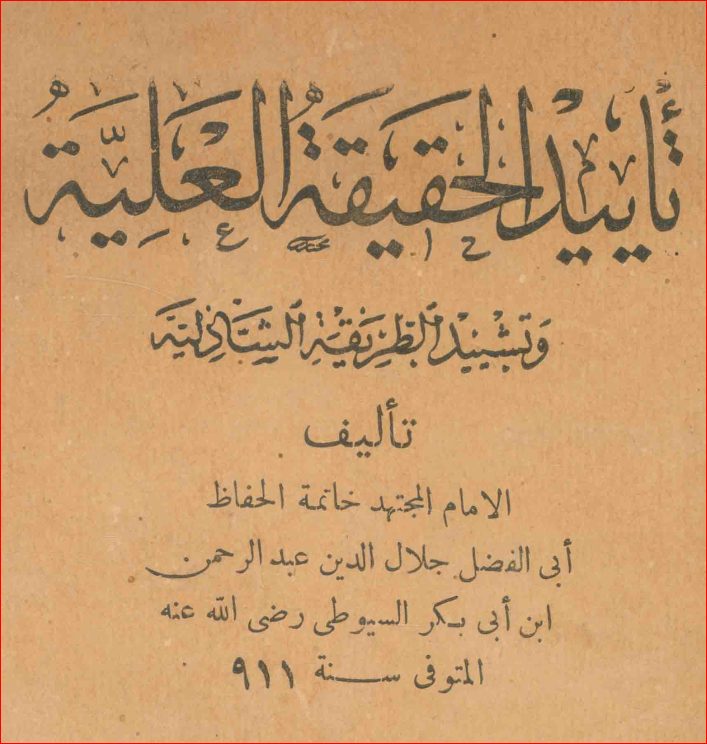 تأييد الحقيقة العلية
وتشييد الطريقة الشاذلية
تأليف
الامام المجتهد خاتمة الحفاظ
أبى الفضل جلال الدين عبد الرحمن
ابن أبى بكر السيوطى رضى الله عنه
المتوفى سنة ٩١١